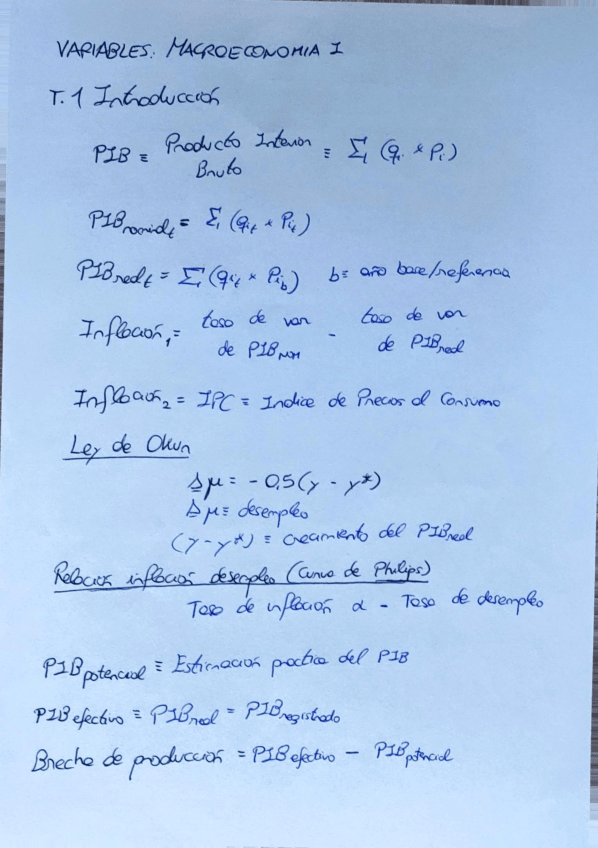 VARIABLES: MACROECONOMIA I
T.1 Introducción
PIB ≡ Producto Interior Bruto ≡ Σi (qi * Pi)
PIBnominalt = Σi (qit * Pit)
PIBrealt = Σi (qit * Pib) b ≡ año base/referencia
Inflación1 = tasa de var de PIBNOM - tasa de var de PIBreal
Inflación2 = IPC = Indice de Precios al Consumo
Ley de Okun
Δμ = - 0,5 (y - y*)
Δμ ≡ desempleo
(y - y*) ≡ crecimiento del PIBreal
Relación inflación desempleo (Curva de Philips)
Tasa de inflación α - Tasa de desempleo
PIBpotencial ≡ Estimación practica del PIB
PIBefectivo ≡ PIBreal = PIBregistrado
Brecha de producción = PIBefectivo - PIBpotencial